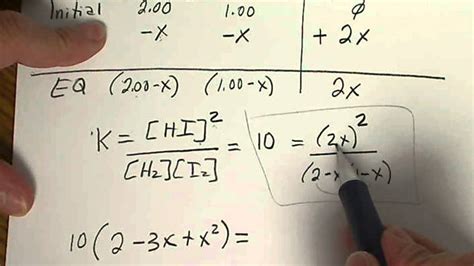 Initial 2.00 1.00 ϕ
-X -X + 2X
EQ (2.00-X) (1.00-X) 2X
K = [HI]² / [H₂][I₂] = 10 = (2X)² / (2-X)(1-X)
10(2-3X+X²) =